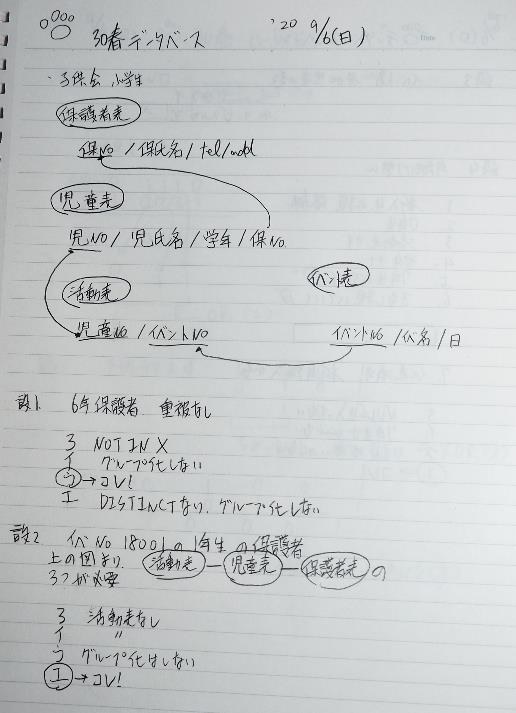 30春データベース '20 9/6(日)
・子供会 小学生
保護者表
保NO / 保氏名 / tel/add
児童表
児NO / 児氏名 / 学年 / 保NO
活動表 イベント表
児童NO / イベントNO イベントNO / イベ名 / 日
設1. 6年保護者 重複なし
ア NOT IN X
イ グループ化しない
ウ → コレ!
エ DISTINCTなり、グループ化しない
設2 イベNO 18001の1年生の保護者
上の図より、 活動表 ー 児童表 ー 保護者表 の
3つが必要
ア 活動表なし
イ 〃
ウ グループ化はしない
エ → コレ!